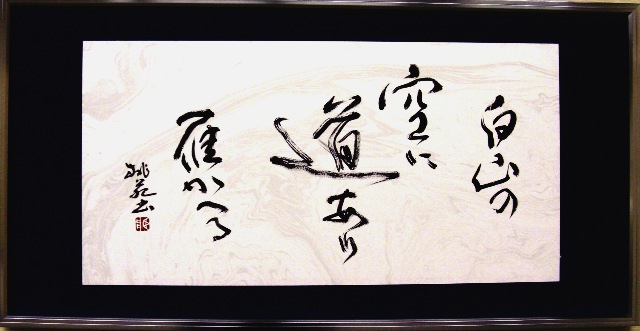 白山の
空に
道あり
雁かへる